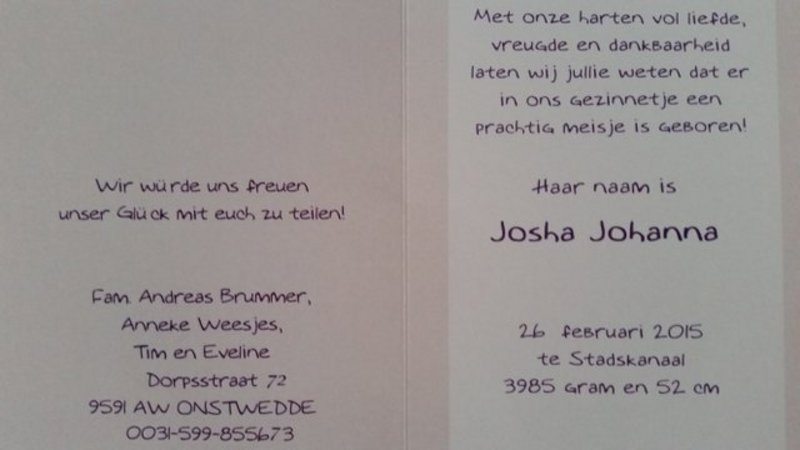 Wir würde uns freuen
unser Glück mit euch zu teilen!
Fam. Andreas Brummer,
Anneke Weesjes,
Tim en Eveline
Dorpsstraat 72
9591 AW ONSTWEDDE
0031-599-855673
Met onze harten vol liefde,
vreugde en dankbaarheid
laten wij jullie weten dat er
in ons gezinnetje een
prachtig meisje is geboren!
Haar naam is
Josha Johanna
26 februari 2015
te Stadskanaal
3985 gram en 52 cm